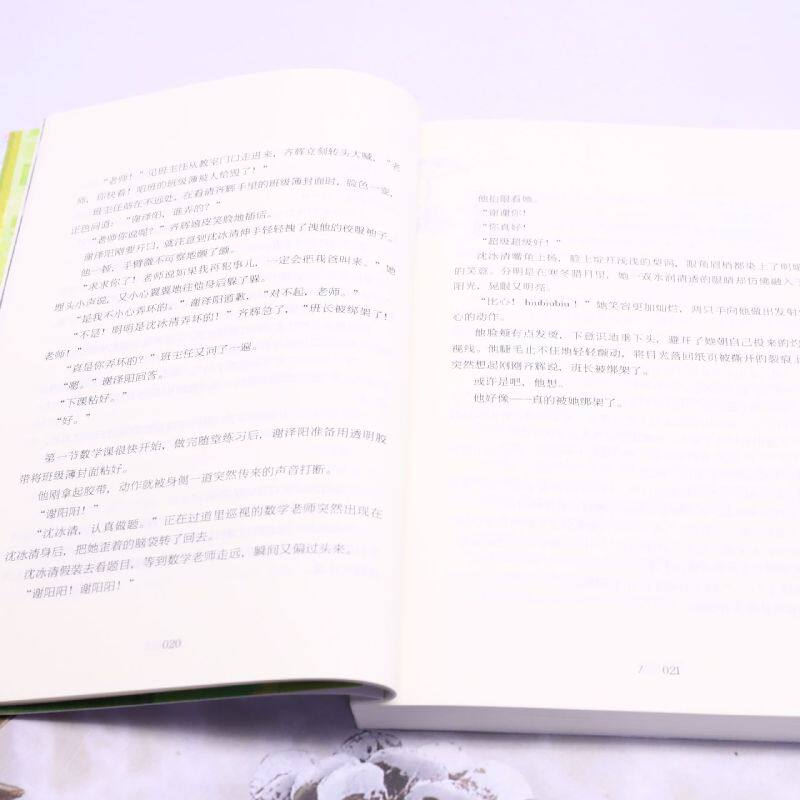 “老师！”见班主任从教室门口走进来，齐辉立刻转头大喊，“老
师，你快看！咱班的班级簿被人给毁了！”
班主任站在不远处，在看清齐辉手里的班级簿封面时，脸色一变，
正色问道：“谢泽阳，谁弄的？”
“老师你说呢？”齐辉嬉皮笑脸地插话。
谢泽阳刚要开口，就注意到沈冰清伸手轻轻拽了拽他的校服袖子。
他一顿，手臂微不可察地颤了颤。
“求求你了！老师说如果我再犯事儿，一定会把我爸叫来。”她
埋头小声说，又小心翼翼地往他身后躲了躲。
“是我不小心弄坏的。”谢泽阳道歉，“对不起，老师。”
“不是！明明是沈冰清弄坏的！”齐辉急了，“班长被绑架了！
老师！”
“真是你弄坏的？”班主任又问了一遍。
“嗯。”谢泽阳回答。
“下课粘好。”
“好。”
第一节数学课很快开始，做完随堂练习后，谢泽阳准备用透明胶
带将班级簿封面粘好。
他刚拿起胶带，动作就被身侧一道突然传来的声音打断。
“谢阳阳！”
“沈冰清，认真做题。”正在过道里巡视的数学老师突然出现在
沈冰清身后，把她歪着的脑袋转了回去。
沈冰清假装去看题目，等到数学老师走远，瞬间又偏过头来。
“谢阳阳！谢阳阳！”
020
他抬眼看她。
“谢谢你！
“你真好！
“超级超级好！”
沈冰清嘴角上扬，脸上绽开浅浅的梨涡，眼角眉梢都染上了明媚
的笑意。分明是在寒冬腊月里，她一双水润清透的眼睛却仿佛融入了
阳光，晃眼又明亮。
“比心！biubiubiu！”她笑容更加灿烂，两只手向他做出发射
心的动作。
他脸颊有点发烫，下意识地垂下头，避开了她朝自己投来的灼
视线。他睫毛止不住地轻轻颤动，将目光落回纸页被撕开的裂痕上
突然想起刚刚齐辉说，班长被绑架了。
或许是吧，他想。
他好像——真的被她绑架了。
/ 021